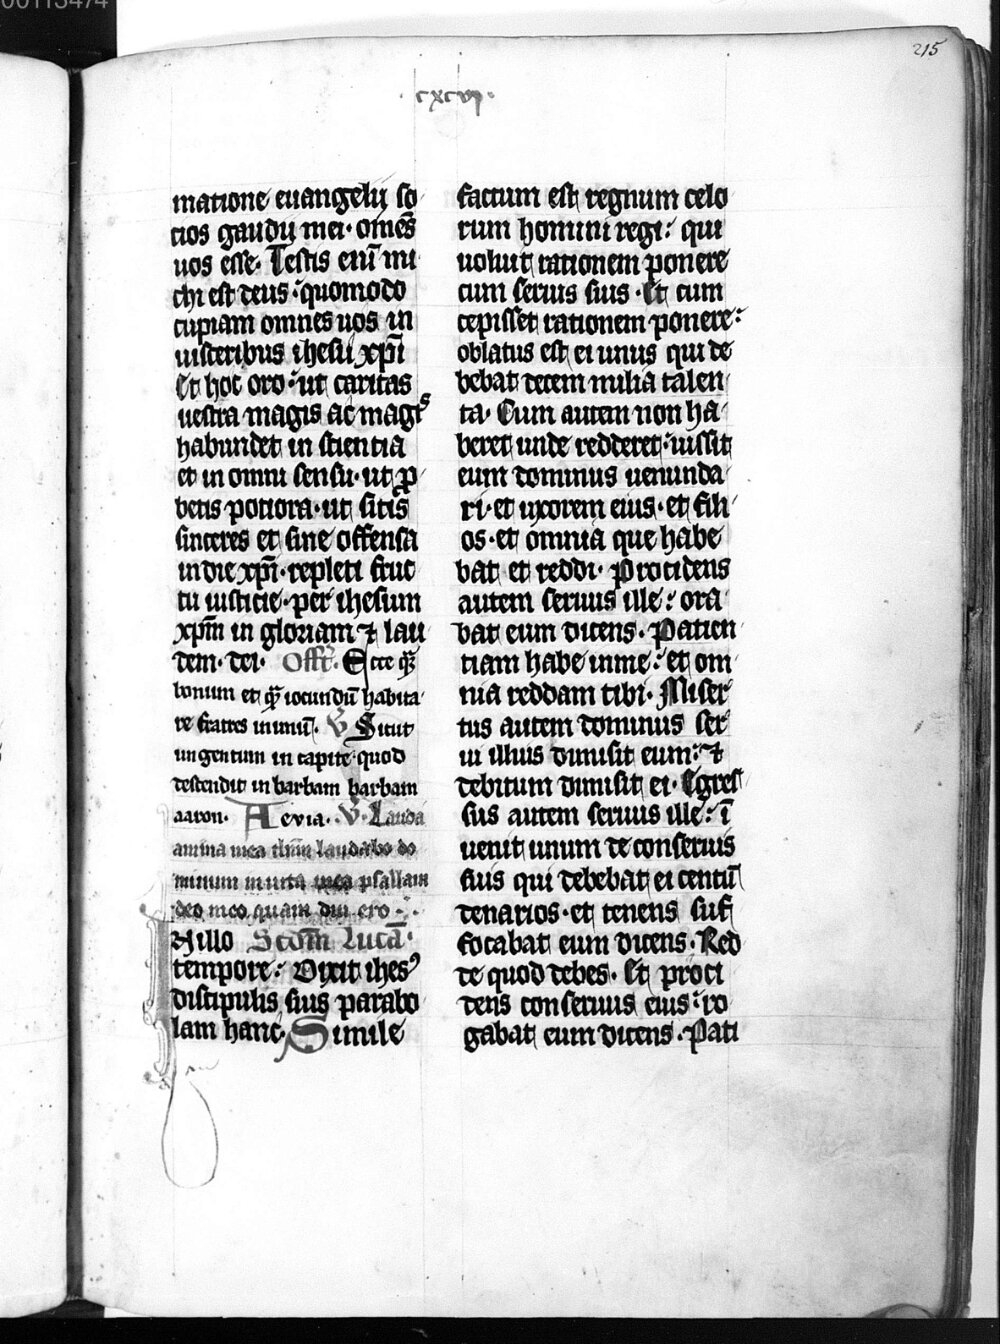 00113474
215
· cxcvj ·
matione euangelij so
cios gaudij mei · om̄es
uos esse · Testis eni᷑ mi
chi est deus : quomodo
cupiam omnes uos in
uisceribus ihesu xp̄i
Et hoc oro : ut caritas
uestra magis ac magꝭ
habundet in scientia
et in omni sensu · ut p
betis potiora · ut sitis
sinceres et sine offensa
in die xp̄i · repleti fruc
tu iusticie · per ihesum
xp̄m in gloriam ⁊ lau
dem · dei · Offr̄ · Ecce q̄
bonum et q̄ iocundū habita
re fratres in unū · V̄ Sicut
ungentum in capite quod
descendit in barbam barbam
aaron · Aevia · V̄ · Lauda
anima mea dn̄m laudabo do
minum in uita mea psallam
deo meo quam diu ero ·
In illo Scdm̄ Lucā ·
tempore : Dixit ihesꝰ
discipulis suis parabo
lam hanc · Simile
factum est regnum celo
rum homini regi : qui
uoluit rationem ponere
cum seruis suis · Et cum
cepisset rationem ponere :
oblatus est ei unus qui de
bebat decem milia talen
ta · Cum autem non ha
beret unde redderet : iussit
eum dominus uenunda
ri · et uxorem eius · et fili
os · et omnia que habe
bat et reddi · Procidens
autem seruus ille : ora
bat eum dicens · Patien
tiam habe in me : et om
nia reddam tibi · Miser
tus autem dominus ser
ui illius dimisit eum : ⁊
debitum dimisit ei · Egres
sus autem seruus ille : ī
uenit unum de conseruis
suis qui debebat ei centū
denarios · et tenens suf
focabat eum dicens · Red
de quod debes · Et proci
dens conseruus eius : ro
gabat eum dicens · Pati